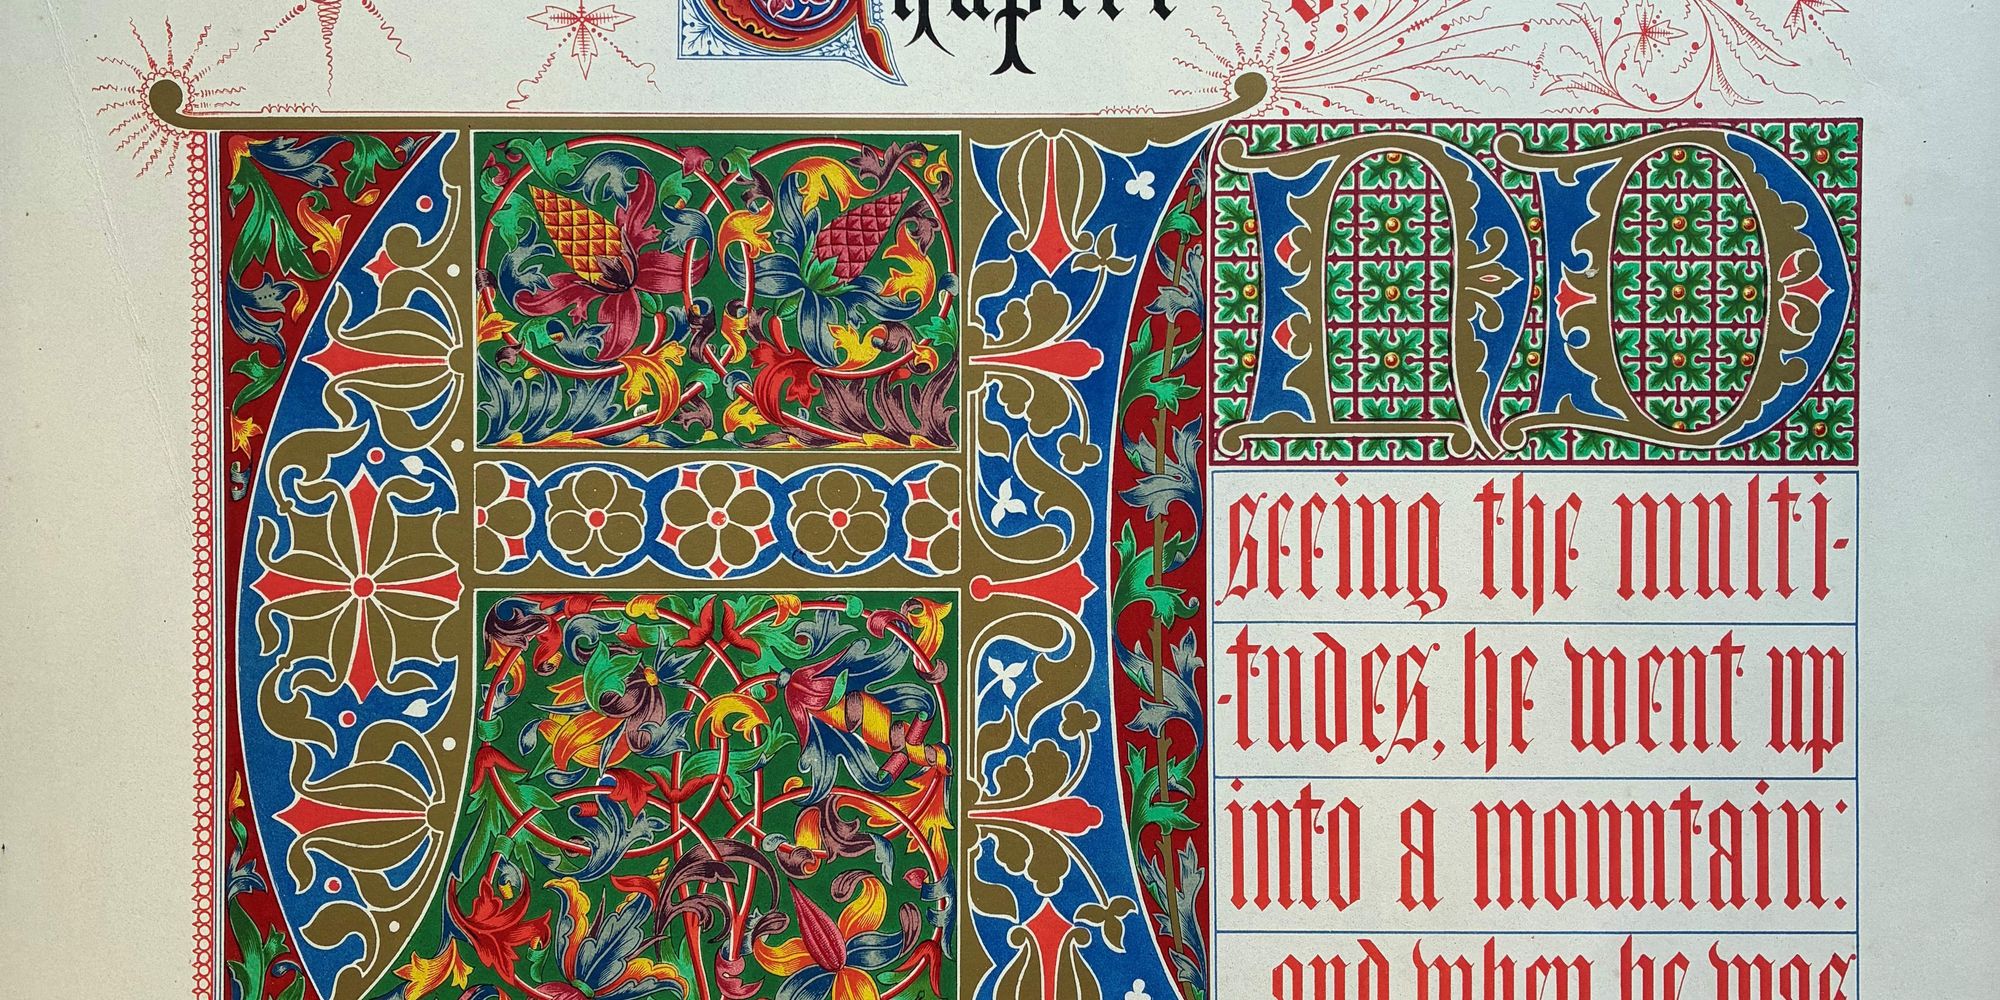 Chapter v.
AND
seeing the multi-
-tudes, he went up
into a mountain:
and when he was